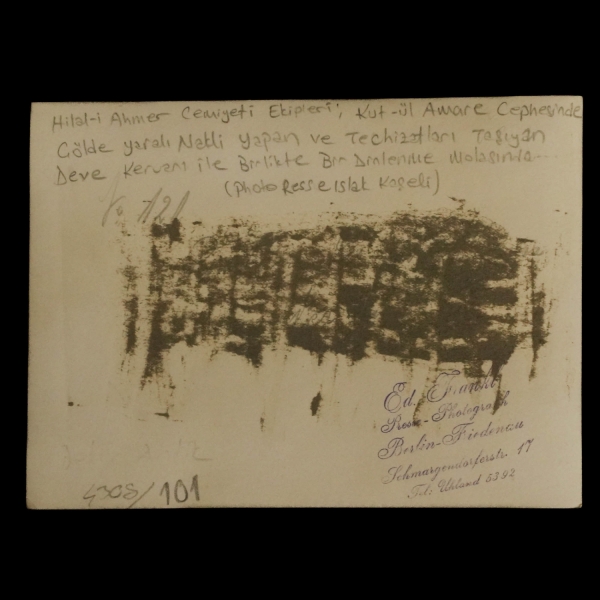 Hilal-i Ahmer Cemiyeti Ekipleri; Kut-ül Amare Cephesinde
Çölde yaralı Nakli yapan ve Techizatları Taşıyan
Deve Kervanı ile Birlikte Bir Dinlenme Molasında
(Photo Resse Islak Kaşeli)
121
4308/101
Ed. Frankl
Presse-Photograph
Berlin-Friedenau
Schmargendorferstr. 17
Tel: Uhland 5392